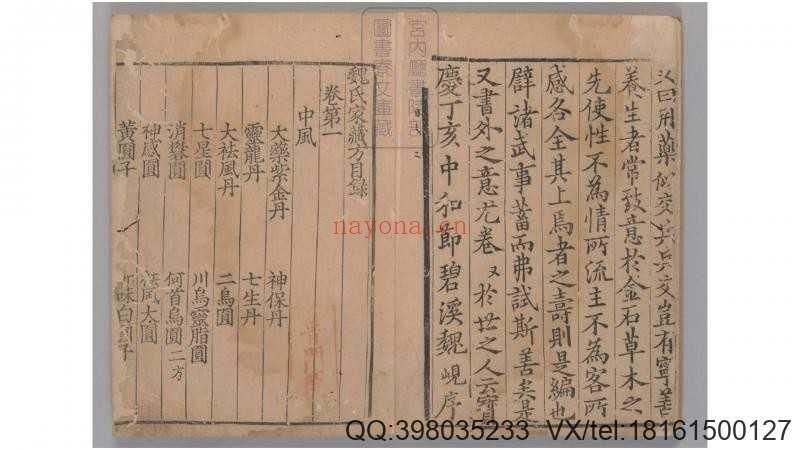 曰用藥似交兵兵交豈有寧善
養生者常致意於金石草木之
先使性不為情所流主不為客所
感各全其上焉者之壽則是編也
譬諸武事蓄而弗試斯善矣是
又書外之意尤卷々於世之人云寶
慶丁亥中和節碧溪魏峴序
宮內廳書陵部
圖書寮文庫藏
魏氏家藏方目錄
卷第一
中風
大藥紫金丹 神保丹
靈龍丹 七生丹
大袪風丹 二烏圓
七星圓 川烏靈脂圓
消礬圓 何首烏圓二方
神感圓 祛風太圓
黃圓子 味白圓子
nayona.cn
QQ:398035233 VX/tel:18161500127